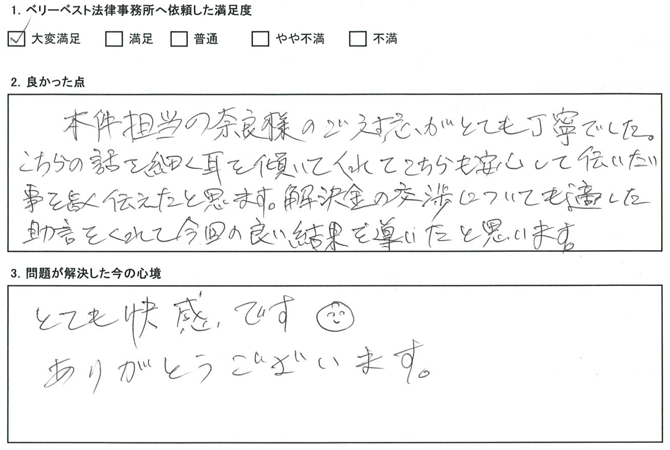 1. ベリーベスト法律事務所へ依頼した満足度
大変満足 満足 普通 やや不満 不満
2. 良かった点
本件担当の奈良様の がとても丁寧でした。
こちらの話を細く耳を傾いてくれてこちらも安心して伝いたい
事を 伝えたと思ます。解決金の交渉についても適した
助言をくれて今回の良い結果を導いたと思います。
3. 問題が解決した今の心境
とても快感、です
ありがとうございます。